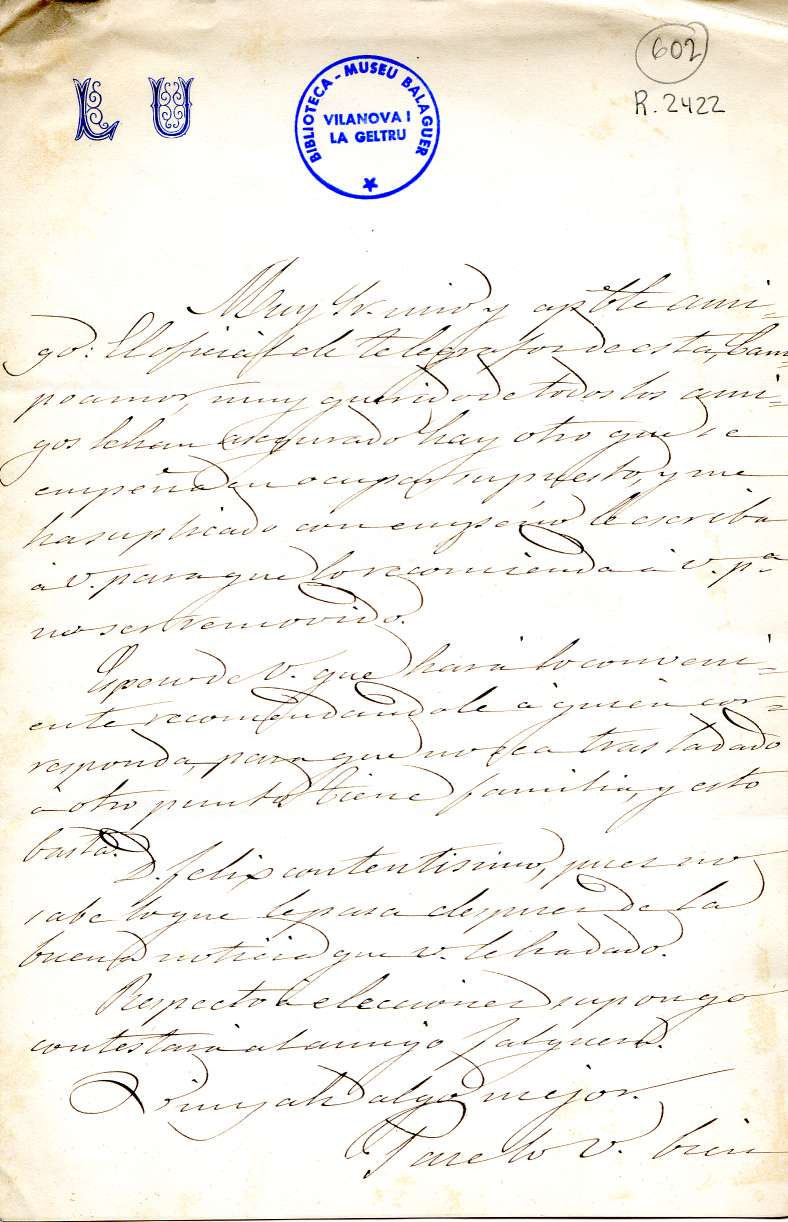 602
R. 2422
L U
BIBLIOTECA - MUSEU BALAGUER
VILANOVA I
LA GELTRU
Muy Sr. mio y apble ami-
go: El oficial de telegrafos de esta, Cam-
poamor, muy querido de todos los ami-
gos le han asegurado hay otro que se
empeña en ocupar su puesto, y me
ha suplicado con empeño le escriba
à V. para que lo recomienda à V. pª
no ser removido.
Espero de V. que hará lo conveni-
ente recomendandole à quien cor-
responda, para que no sea trasladado
à otro punto, tiene familia, y esto
basta.
D. felix contentisimo, pues no
sabe lo que le pasa despues de la
buena noticia que V. le ha dado.
Respecto à elecciones supongo
contestará al amigo Falguera.
Pinyah algo mejor.
Paselo V. bien